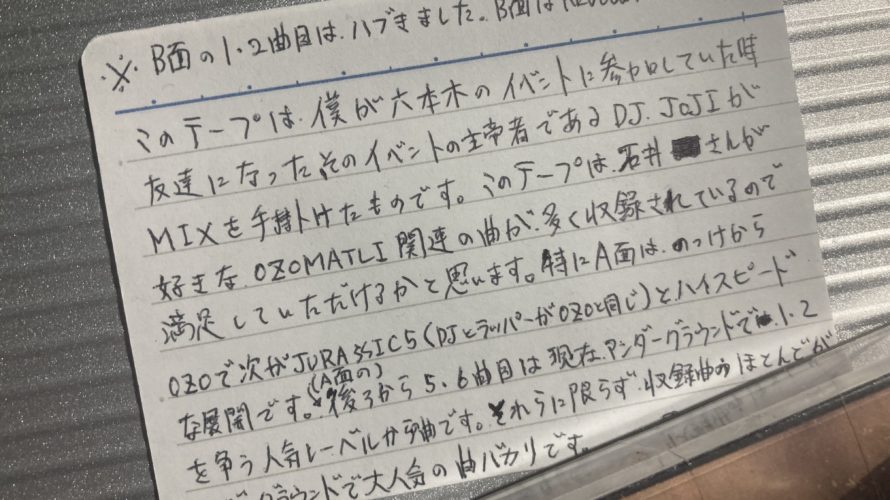 ※ B面の1.2曲目は、ハブきました。B面は
このテープは、僕が六本木のイベントに参加していた時
友達になったそのイベントの主帝者であるDJ. JOJIが
MIXを手掛けたものです。このテープは、石井 さんが
好きな、OZOMATLI関連の曲が、多く収録されているので
満足していただけるかと思います。特にA面は、のっけから
OZOで次がJURASSIC5(DJとラッパーがOZOと同じ)とハイスピード
な展開です。(A面の)後ろから5.6曲目は現在、アンダーグラウンドで1.2
を争う人気レーベルか曲です。それらに限らず、収録曲のほとんどが
グラウンドで大人気の曲バカリです。